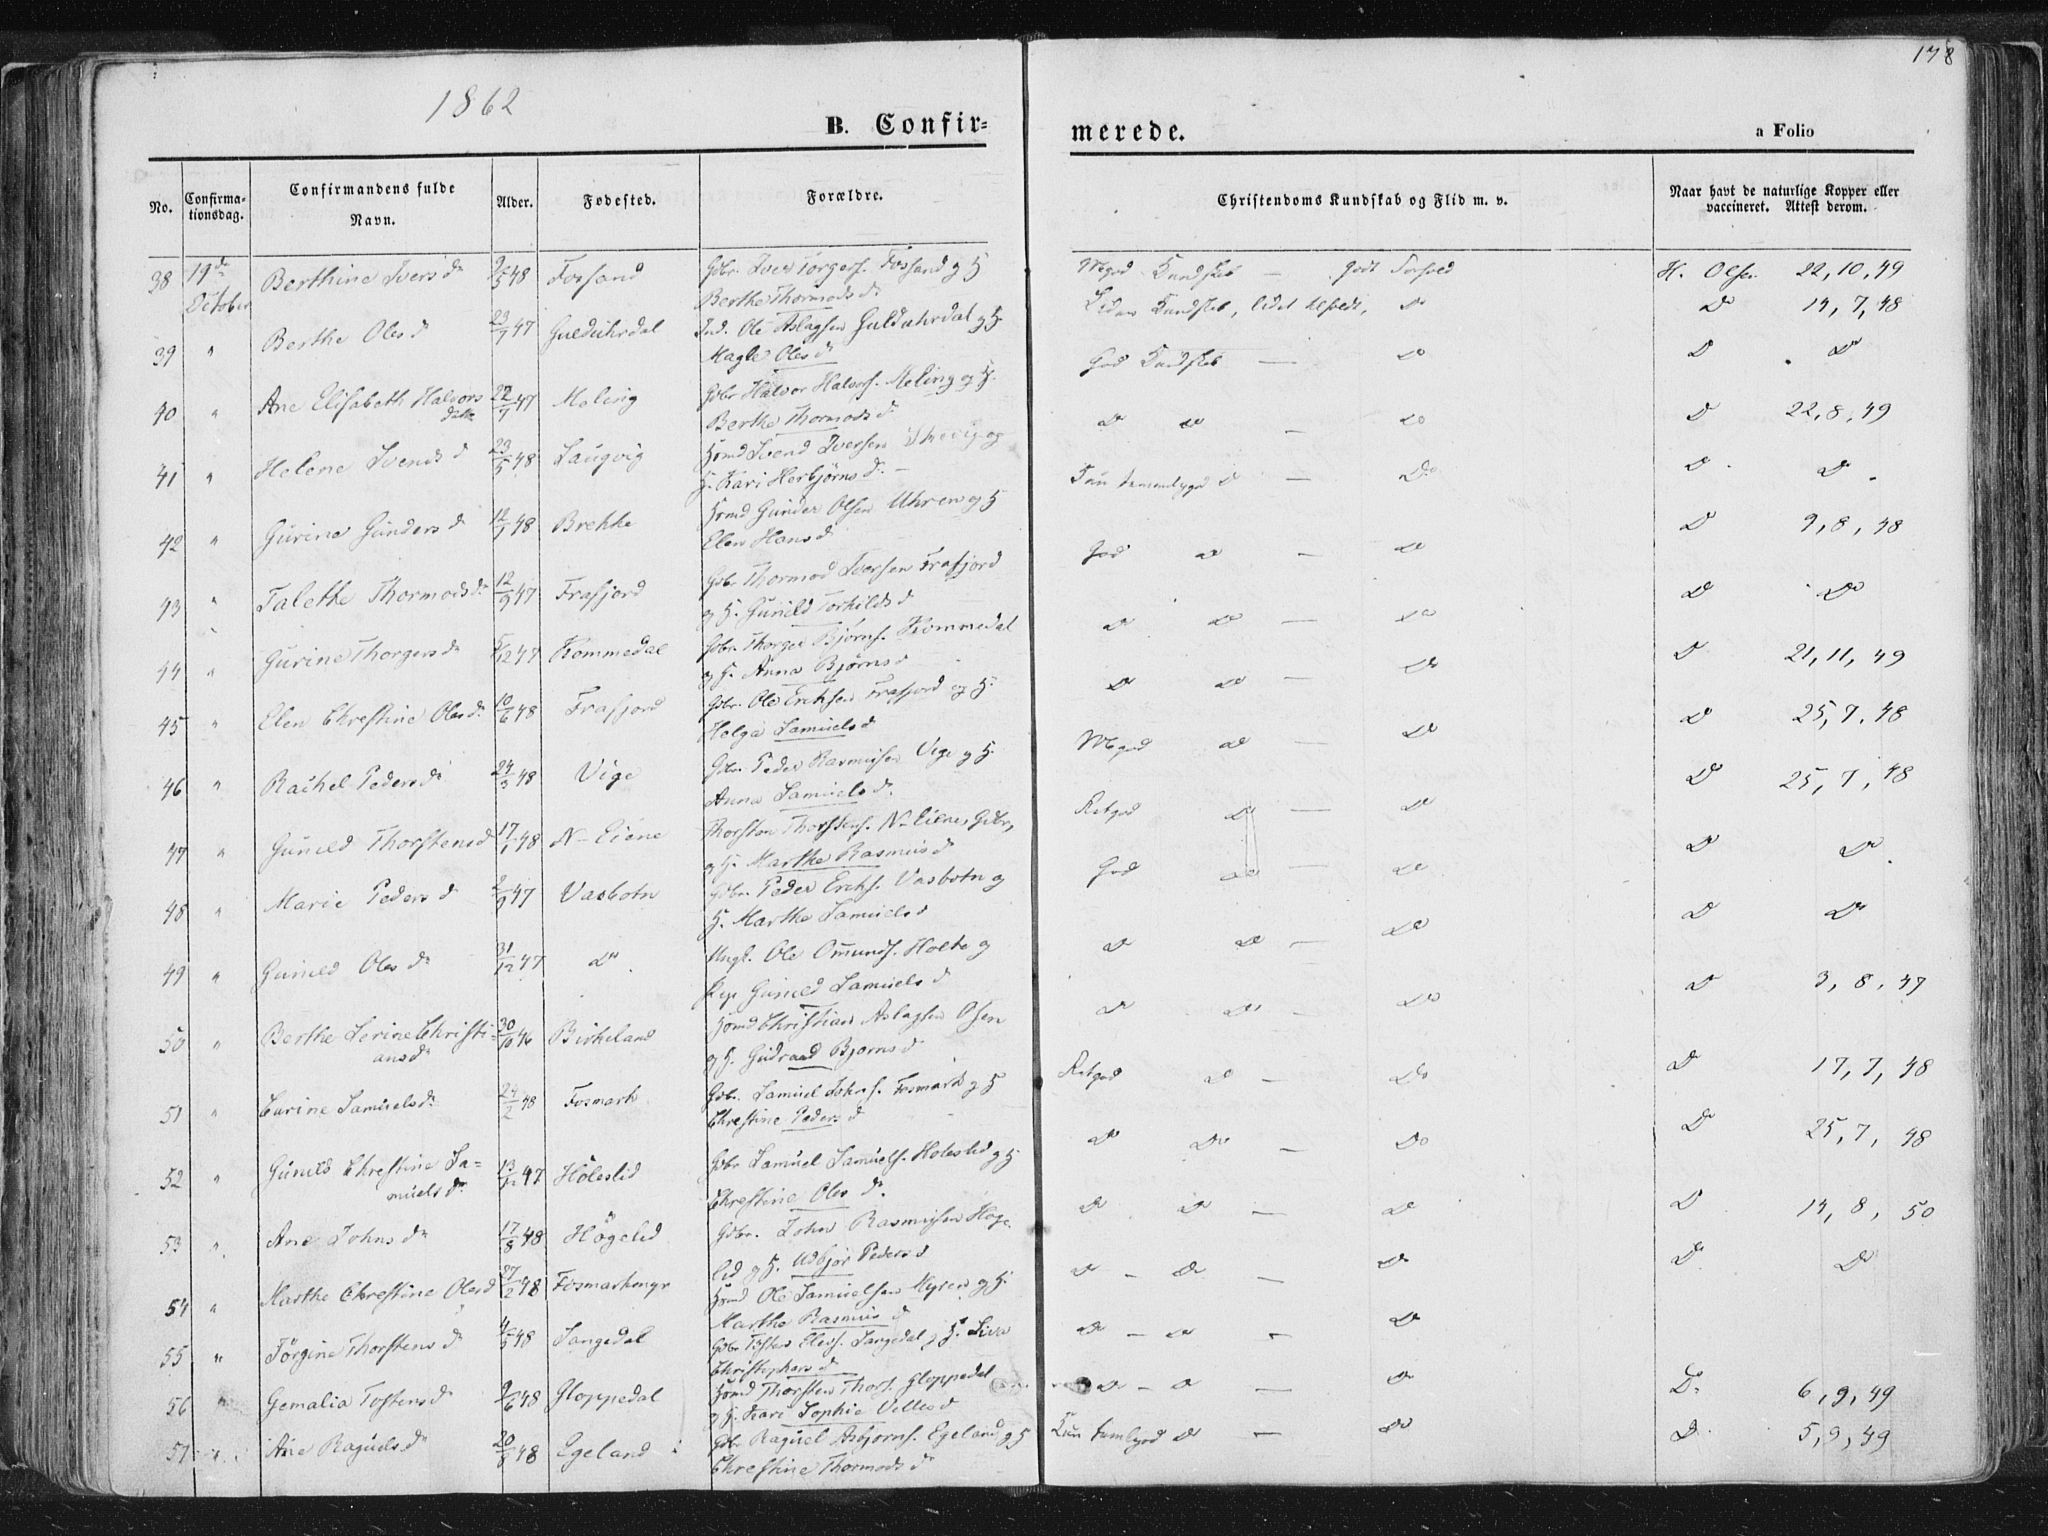 178
1862
B. Confir=
merede.
a Folio
No.
Confirma-
tionsdag.
Confirmandens fulde
Navn.
Alder.
Fødested.
Forældre.
Christendoms Kundskab og Flid m. v.
Naar havt de naturlige Kopper eller
vaccineret. Attest derom.
38 19de October Berthine Iversd 9/5 48 Fossand Gbr. Iver Torgers. Fossand og H
Berthe Thormodsd. Mgod Kundskab — godt Forhold H. Olsen 22, 10, 49
39 " Berthe Olesd 23/7 47 Gulduhrdal Ind. Ole Aslagsen Gulduhrdal og H.
Magle Olesd Kundskab, lidet do Do 14, 7, 48
40 " Ane Elisabeth Halvors
datter 22/7 47 Meling Gbr Halvor Halvors. Meling og H.
Berthe Thormodsd. God Kundskab — do D Do
41 " Helene Svendsd 23/5 48 Laugvig Hmd Svend Iversen og
H. Kari Herbjørnsd. — D do — do D 22, 8, 49
42 " Gurine Gundersd 12/1 48 Brekke Hmd Gunder Olsen Uhren og H
Elen Hansd Kun do — Do D. Do
43 " Talette Thormodsd. 12/9 47 Frafjord Gbr Thormod Iversen Frafjord
og H. Gunild Torkildsd God do — do D 9, 8, 48
44 " Gurine Thorgersd. /12 47 Kommedal Gbr. Thorger Bjørns. Kommedal
og H. Anna Bjørnsd D do — do D Do
45 " Elen Chrestine Olesd. 10/6 48 Frafjord Gbr. Ole Eriksen Frafjord og H.
Helga Samuelsd Do do — Do D 21, 11, 49
46 " Rachel Pedersd. 24/3 48 Vige Gbr. Peder Rasmusen Vige og H.
Anna Samuelsd. Mgod do — do D 25, 7, 48
47 " Gunild Thorstensd 17/1 48 N-Eiene Thorsten Thorstens. N-Eiene, Gbr,
og H. Marthe Rasmusd. Retgod D — Do Do 25, 7, 48
48 " Marie Pedersd 2/9 47 Vasbotn Gbr. Peder Eriks. Vasbotn og
H. Marthe Samuelsd God do — do D Do
49 " Gunild Olesd 31/12 47 do Ungk. Ole Omunds. Holte og
Pige Gunild Samuelsd D do — do D Do
50 " Berthe Serine Christi=
ansd. 30/10 46 Birkeland Hmd Christian Aslagsen Osen
og H. Gudraad Bjørnsd Do Do — do D 3, 8, 47
51 " Carine Samuelsd. 24/2 48 Fosmark Gbr. Samuel Johns. Fosmark og H
Chrestine Pedersd Retgod D — Do D. 17, 7, 48
52 " Gunild Chrestine Sa=
muelsd. 13/12 47 Holeslid Gbr Samuel Samuels. Holeslid og H
Chrestine Olesd. Do Do — Do Do 25, 7, 48
53 " Ane Johnsd. 17/8 48 Høgelid Gbr. John Rasmusen Høge-
lid og H. Udbjør Pedersd Do Do — Do D 14, 8, 50
54 " Marthe Chrestine Olesd 27/2 48 Fosmarkmyr Hmd Ole Samuelsen Myren og H.
Marthe Rasmusd Do - Do — Do D. Do
55 " Jørgine Thorstensd. 4/5 48 Sangedal Gbr Tosten Elevs. Sangedal og H. Siva
Christophersd Do - do — Do
56 " Gemalia Tostensd. 9/6 48 Gloppedal Hmd Thorsten Thors. Gloppedal
og H. Kari Sophie Vellesd do - o — do D. 6, 9, 49
57 " Ane Raguelsd. 20/8 48 Egeland Gbr Raguel Asbjørns. Egeland og H
Chrestine Thormodsd. Kun do — do D. 5, 9, 49